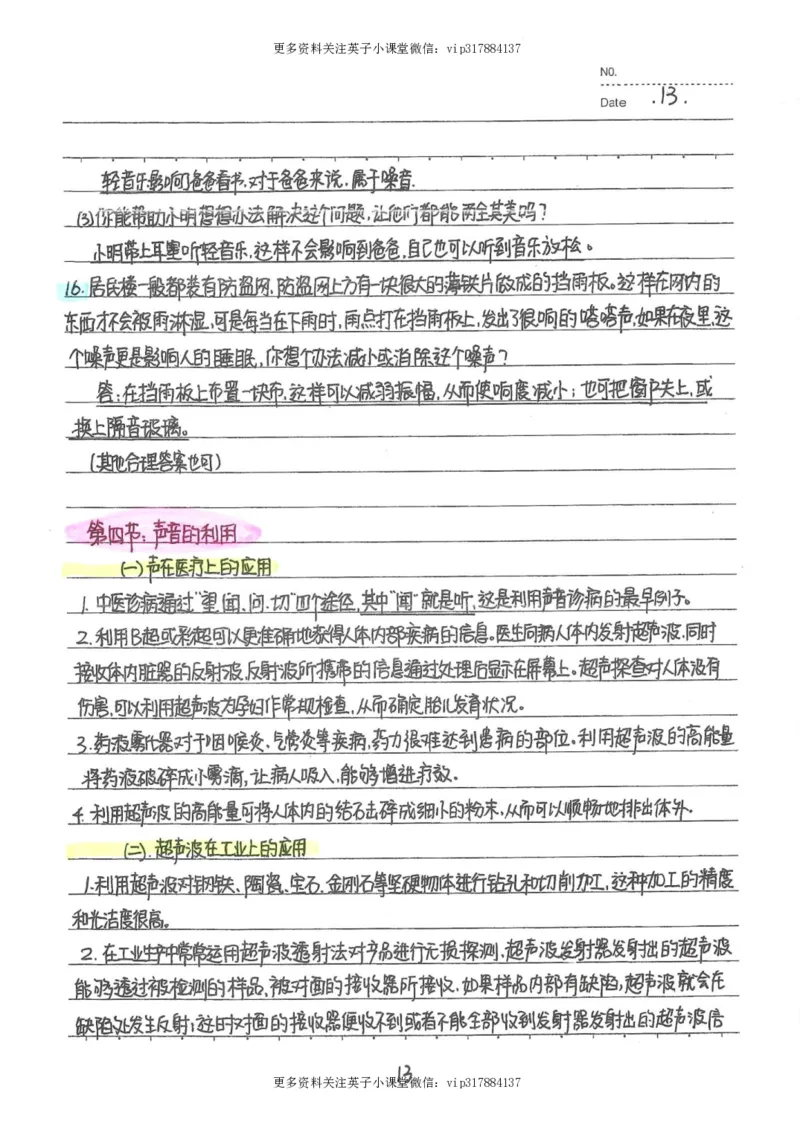 更多资料关注英子小课堂微信：vip317884137
N0.
Date .13.
轻音乐影响了爸爸看书,对于爸爸来说,属于噪音.
(3)你能帮助小明想想办法解决这个问题,让他们都能两全其美吗?
小明带上耳塞听轻音乐,这样不会影响到爸爸,自己也可以听到音乐放松。
16.居民楼一般都装有防盗网,防盗网上方有一块很大的薄铁片做成的挡雨板。这样在网内的
东西才不会被雨淋湿,可是每当在下雨时,雨点打在挡雨板上,发出了很响的嗒嗒声,如果在夜里,这
个噪声更是影响人的睡眠,你想个办法减小或消除这个噪声?
答:在挡雨板上布置一块布,这样可以减弱振幅,从而使响度减小;也可把窗户关上,或
换上隔音玻璃。
(其他合理答案也可)
第四节:声音的利用
(一)声在医疗上的应用
1.中医诊病通过“望、闻、问、切”四个途径,其中“闻”就是听,这是利用声音诊病的最早例子。
2.利用B超或彩超可以更准确地获得人体内部疾病的信息。医生向病人体内发射超声波,同时
接收体内脏器的反射波,反射波所携带的信息通过处理后显示在屏幕上。超声探查对人体没有
伤害,可以利用超声波为孕妇作常规检查,从而确定胎儿发育状况。
3.药液雾化器对于咽喉炎、气管炎等疾病,药力很难达到患病的部位。利用超声波的高能量
将药液破碎成小雾滴,让病人吸入,能够增进疗效.
4.利用超声波的高能量可将人体内的结石击碎成细小的粉末,从而可以顺畅地排出体外.
(二).超声波在工业上的应用
1.利用超声波对钢铁、陶瓷、宝石、金刚石等坚硬物体进行钻孔和切削加工,这种加工的精度
和光洁度很高。
2.在工业生产中常常运用超声波透射法对产品进行无损探测.超声波发射器发射出的超声波
能够透过被检测的样品,被对面的接收器所接收.如果样品内部有缺陷,超声波就会在
缺陷处发生反射;这时对面的接收器便收不到或者不能全部收到发射器发射出的超声波信
13
更多资料关注英子小课堂微信：vip317884137